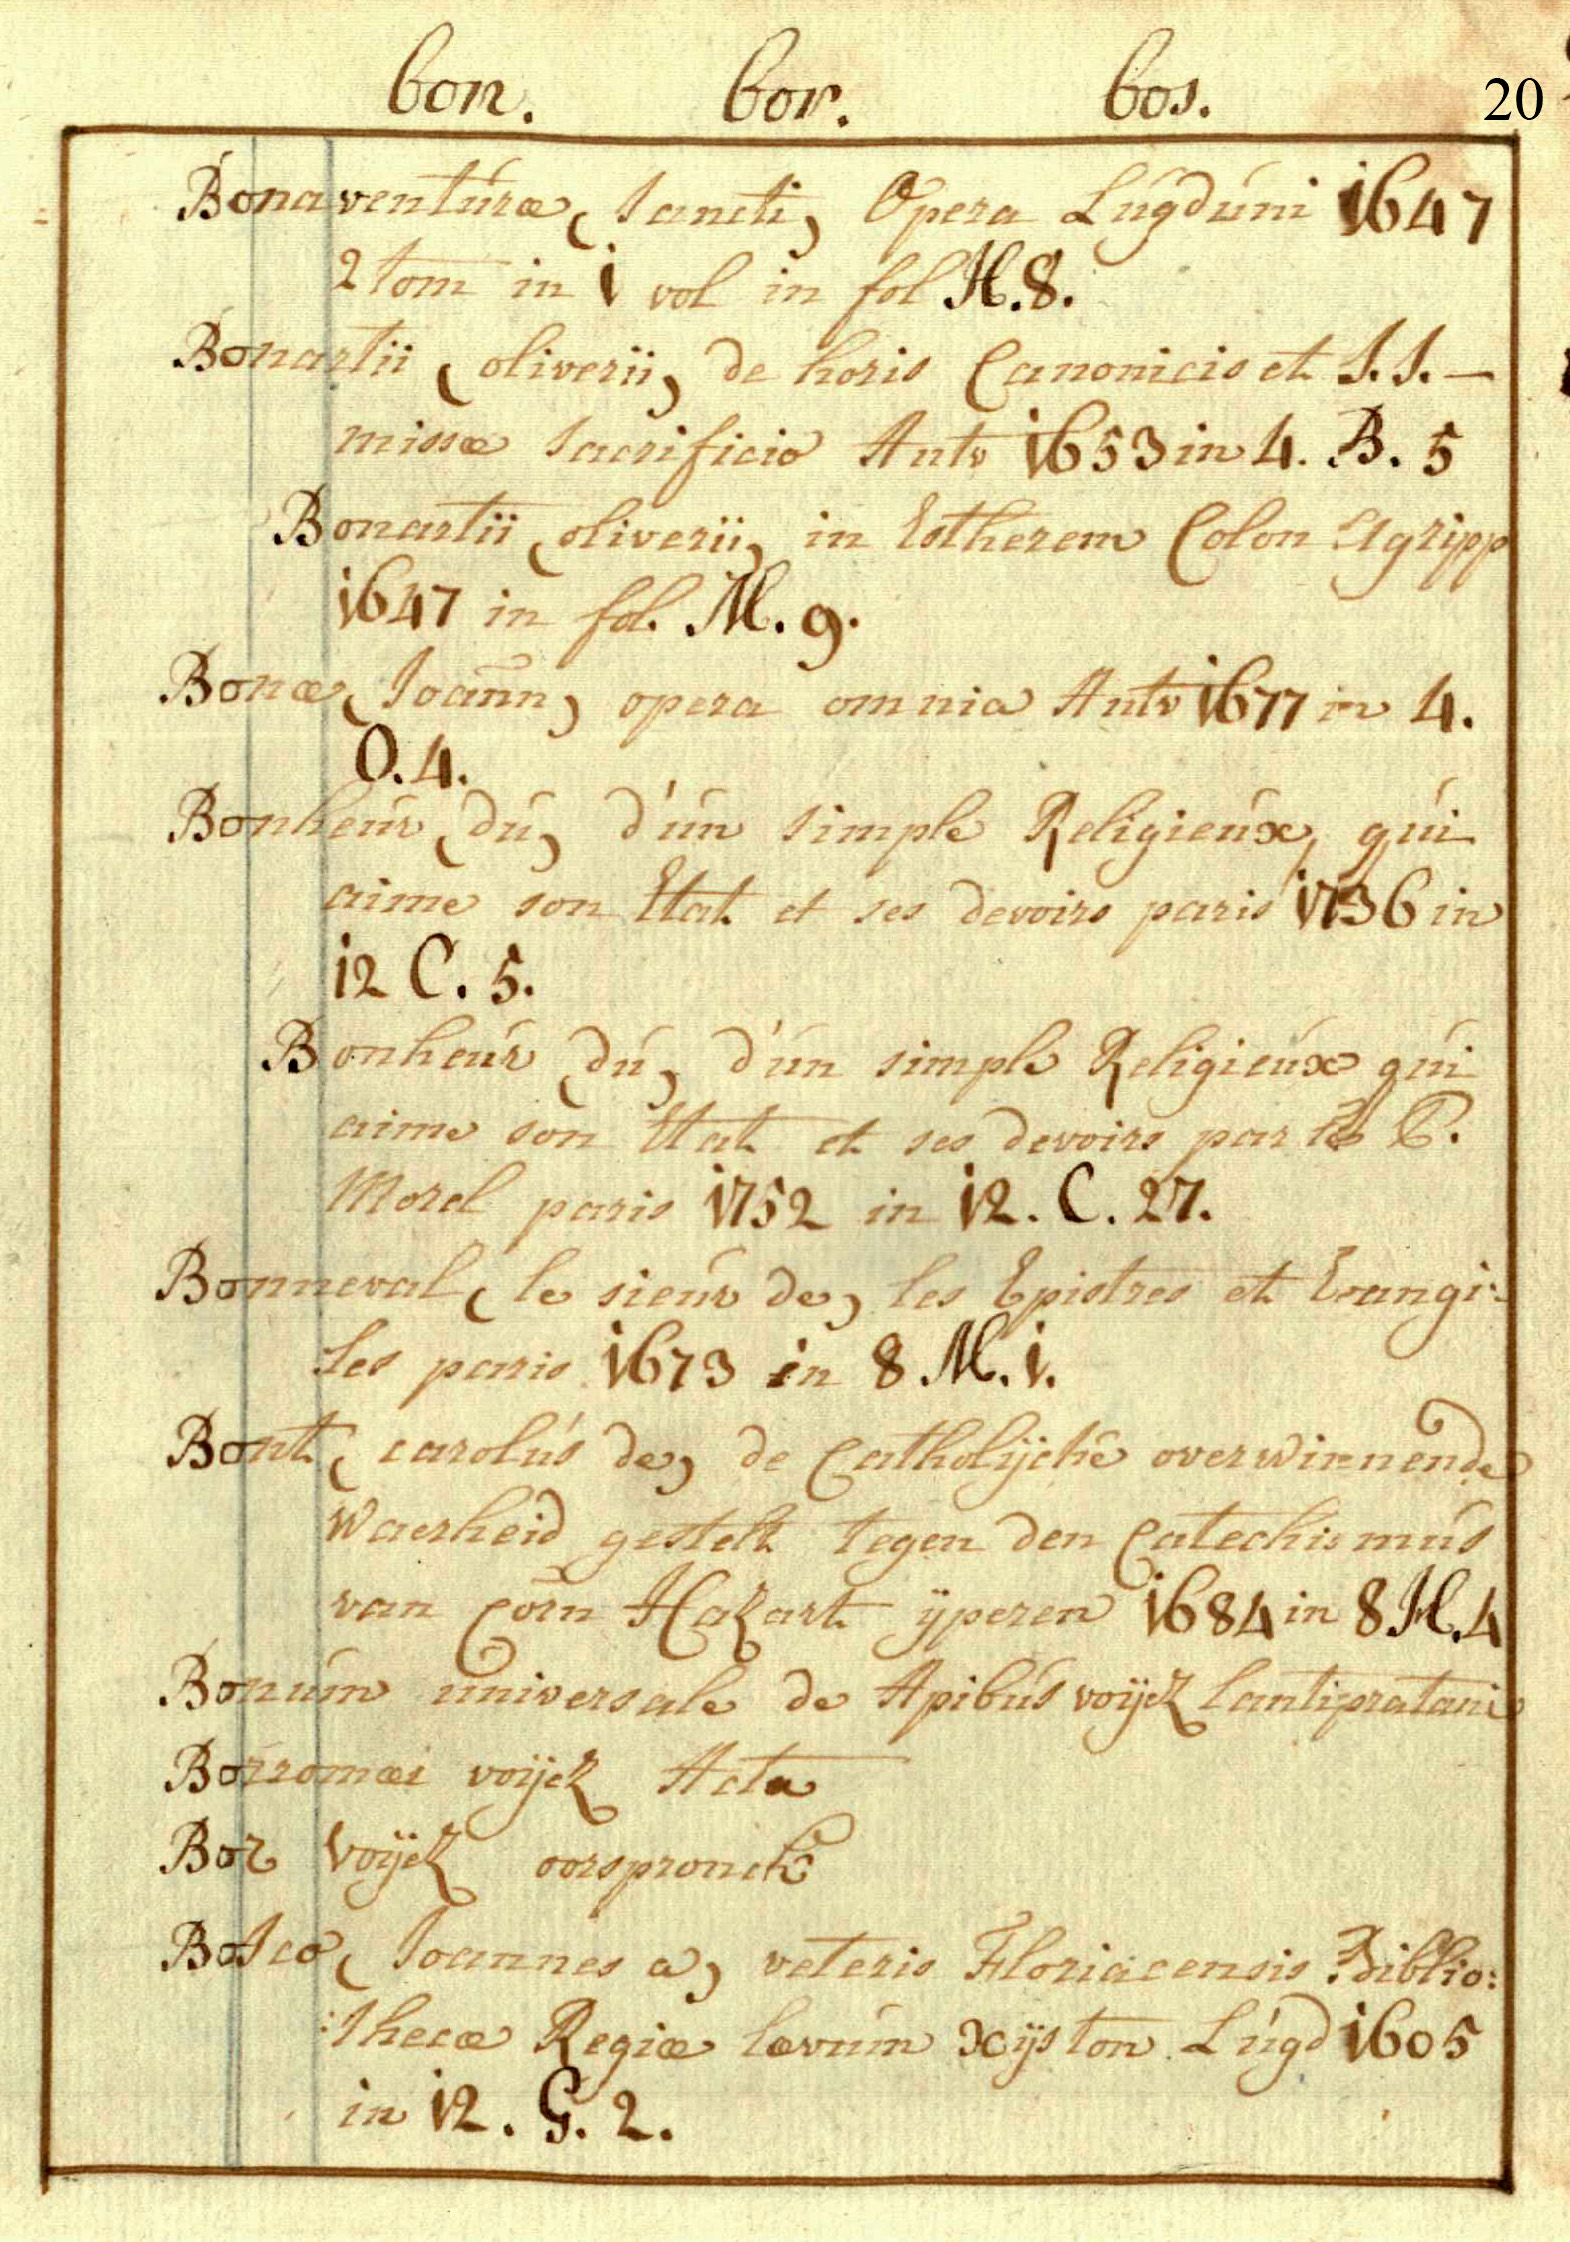 bon. bor. bos. 20
Bonaventúræ (Sancti) Opera Lúgdúni 1647
2 tom in 1 vol in fol H.8.
Bonartii (oliverii) de horis Canonicis et S.S. -
missæ Sacrificio Antv 1653 in 4. B. 5
Bonartii (oliverii) in Estherem Colon Agripp
1647 in fol. M. 9.
Bonæ (Joann) opera omnia Antv 1677 in 4.
O. 4.
Bonheúr (dú) d'ún simple Religieúx, qúi
aime son Etat et ses devoirs paris 1736 in
12 C. 5.
Bonheúr (dú) d'ún simple Religieúx qúi
aime son Etat et ses devoirs par le P.
Morel paris 1752 in 12. C. 27.
Bonneval (le sieúr de) les Epistres et Evangi:
les paris 1673 in 8 M. 1.
Bont (carolús de) de Catholijche overwinnende
Waerheid gestelt tegen den Catechismús
van Corn Hazart ijperen 1684 in 8 H. 4
Bonúm úniversale de Apibús voijez Cantipratani
Borromæi voijez Acta
Bor voijez oorspronck
Bosco (Joannes a) veteris Floriacensis Biblio:
:thecæ Regiæ lævúm xijston Lúgd 1605
in 12. G. 2.